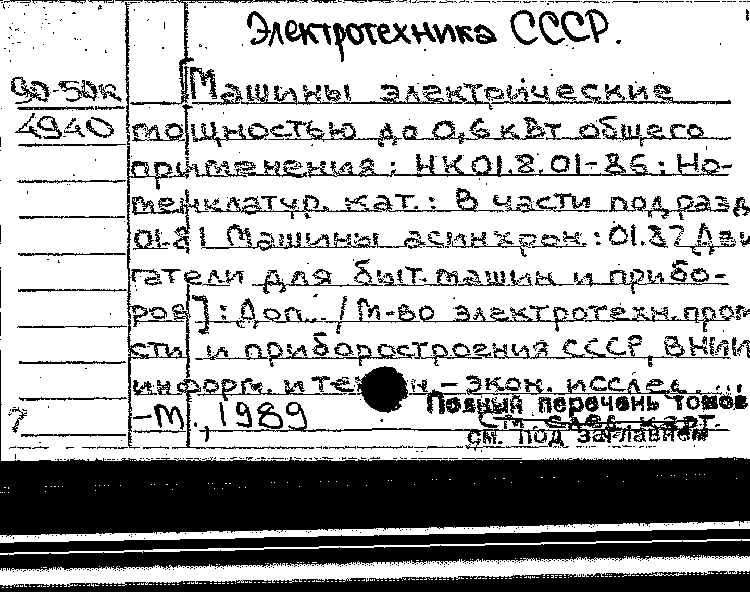 Электротехника СССР.
90-50к [Машины электрические
4940 мощностью до 0,6 кВт общего
применения : НК 01.8.01-86 : Но-
менклатур. кат. : В части подразд
01.81 Машины асинхрон. : 01.87 Дви
гатели для быт. машин и прибо-
ров] : Доп... / М-во электротехн. пром
сти и приборостроения СССР, ВНИИ
информ. и тех н.-экон. исслед. ...
-М., 1989 Полный перечень томов
См. след. карт.
см. под заглавием